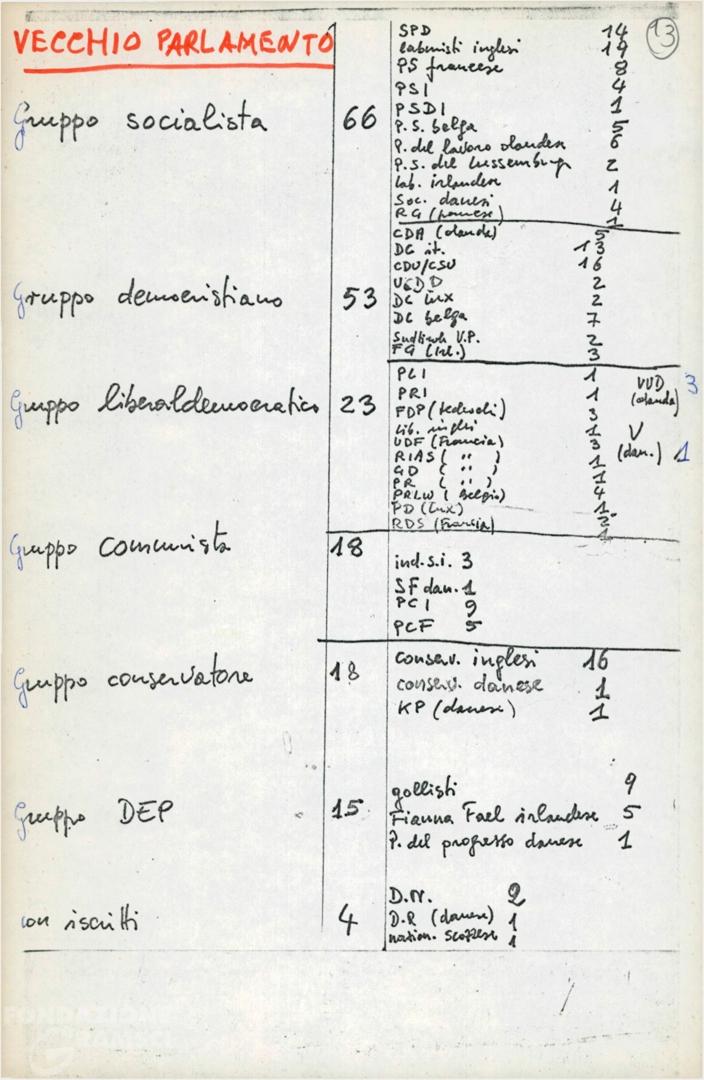 VECCHIO PARLAMENTO
13
Gruppo socialista 66
SPD 14
laburisti inglesi 19
PS francese 8
PSI 4
PSDI 1
P.S. belga 5
P. del lavoro olandese 6
P.S. del Lussemburgo 2
lab. irlandese 1
Soc. danesi 4
RG (francese) 1
Gruppo democristiano 53
CDA (olanda) 5
DC it. 13
CDU/CSU 16
2
DC lux 2
DC belga 7
Sudtirols V.P. 2
FG (Irl.) 3
Gruppo liberaldemocratico 23
PLI 1
PRI 1
FDP (tedeschi) 3
Lib. inglesi 1
UDF (Francia) 3
RIAS ( " ) 1
GD ( " ) 1
PR ( " )
PRLW (Belgio) 4
PD (Lux) 1
RDS (Francia)
VUD (olanda) 3
V (dan.) 1
Gruppo Comunista 18
ind.s.i. 3
SF dan. 1
PCI 9
PCF 5
Gruppo conservatore 18
conserv. inglesi 16
conserv. danese 1
KP (danese) 1
Gruppo DEP 15
gollisti 9
Fianna Fael irlandese 5
P. del progresso danese 1
non iscritti 4
D.N. 2
D.R (danese) 1
nazion. scozzese 1
FONDAZIONE
GRAMSCI